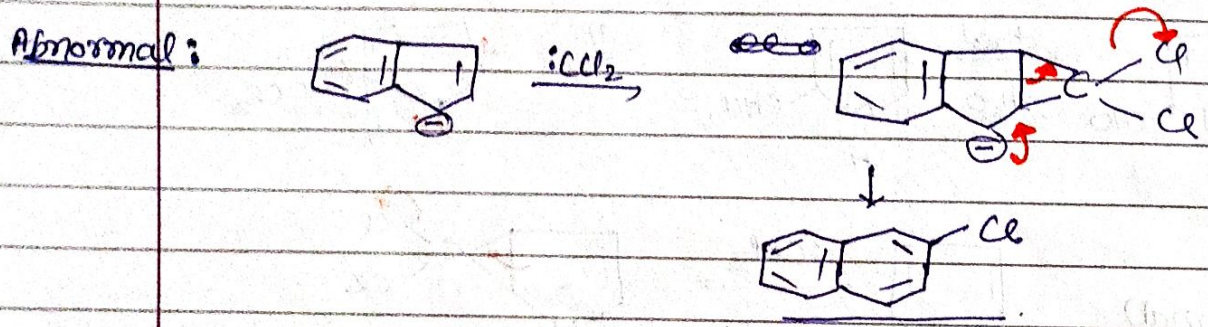 Abnormal:
:CCl2
Cl
C
Cl
⊖
⊖
Cl